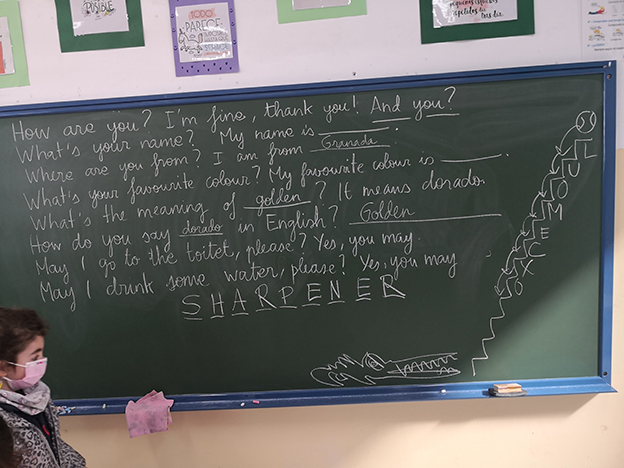 POSIBLE
TODO
PARECE
How are you? I'm fine, thank you! And you?
What's your name? My name is ____.
Where are you from? I am from Granada.
What's your favourite colour? My favourite colour is ____.
What's the meaning of golden? It means dorado.
How do you say dorado in English? Golden
May I go to the toilet, please? Yes, you may.
May I drink some water, please? Yes, you may
SHARPENER
L
U
O
M
E
C
X
O